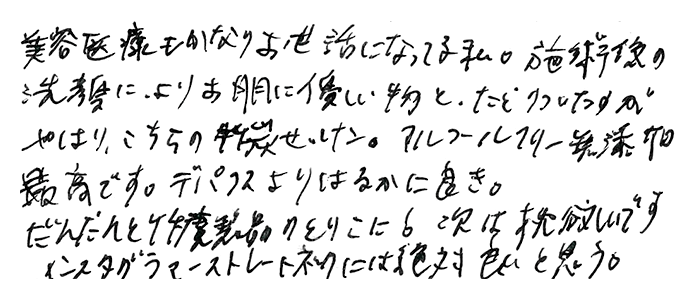 美容医療もかなりお世話になってる私。施術後の
洗顔により お肌に優しい物と、たどりついたのが
やはり、こちらの 炭せっけん。アルコールフリー無添加
最高です。デパコスよりはるかに良き。
だんだんと 製品のとりこに 次は 枕 欲しいです
インスタグラマーストレートネックには絶対 良いと思う。